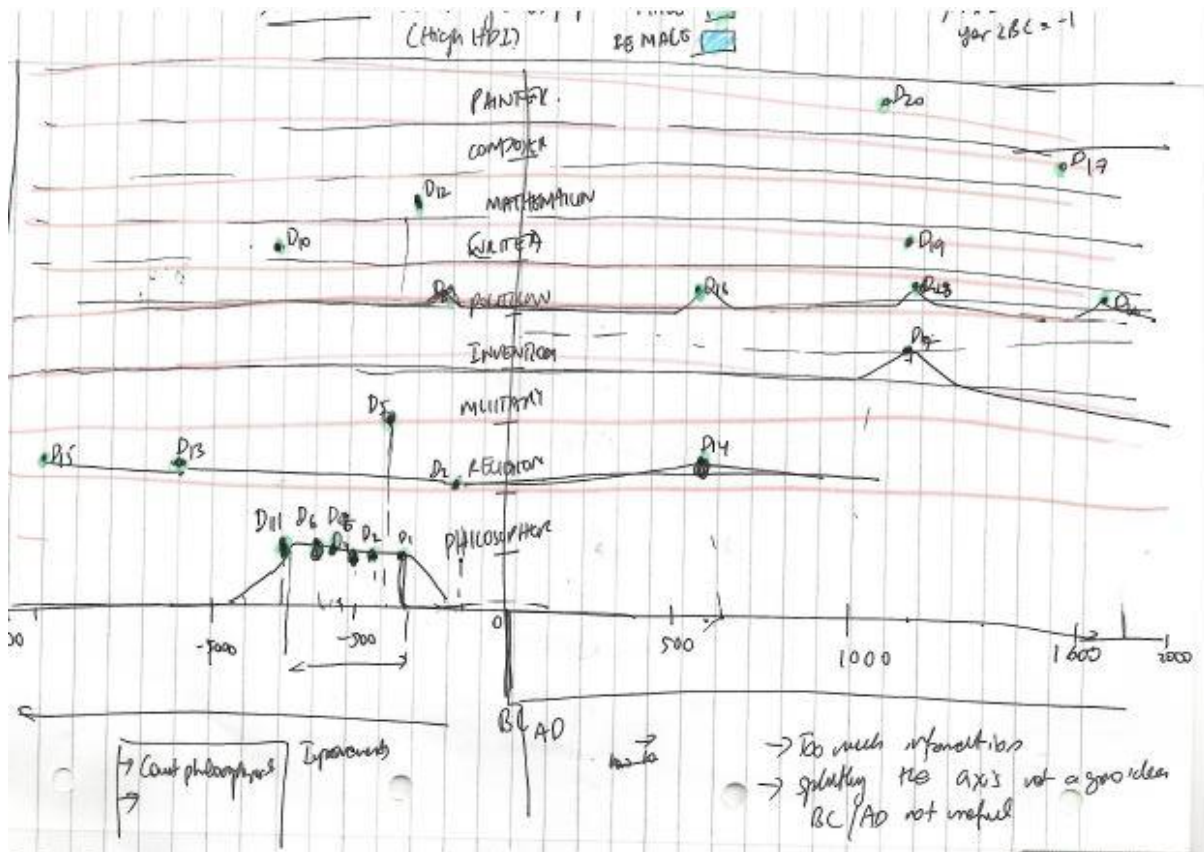 (High HDI)
FEMALE
year 2BC = -1
PAINTER.
D20
COMPOSER
D17
D12
MATHEMATICIN
D10
WRITER
D19
D16
D18
POLITICIAN
INVENTROR
D5
MILITARY
D15
D13
D2
RELIGION
D14
D11
D6
D2
D1
PHILOSOPHER
-1000
-500
0
500
1000
1500
2000
BC AD
Improvements
→ Count philosophers
→
→ Too much information
→ splitting the axis not a good idea
BC/AD not useful